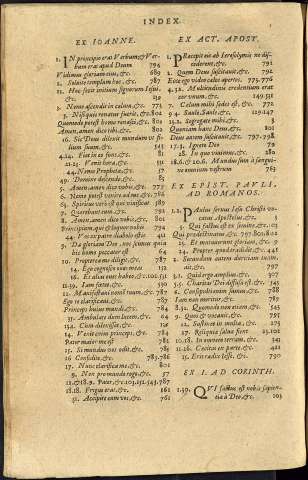 INDEX.
EX IOANNE.
1. IN principio erat Verbum, & Ver-
bum erat apud Deum 794
Vidimus gloriam eius, &c. 689
2. Soluite templum hoc, &c. 787
11. Hoc fecit initium signorum Iesus,
&c.
3. Nemo ascendit in cælum, &c. 773
5. Nisi quis renatus fuerit, &c. 802
Quomodo potest homo renasci, &c. 802
Amen, amen dico tibi, &c. 802
16. Sic Deus dilexit mundum vt fi-
lium suum, &c.
4.24. Fiat in ea fons, &c. 81
21.23. Venit hora, &c.
44. Nemo Propheta, &c. 37
49. Domine descende, &c. 85
5. Amen, amen dico vobis, &c. 787
6. Nemo potest venire ad me, &c. 786
64. Spiritus vero est qui viuificat 389
7. Quærebant eum, &c. 791
8. Amen, amen dico vobis, &c. 801
Principium, qui & loquor vobis 794
44. Vos ex patre diabolo 411
9. Da gloriam Deo, nos scimus quia
hic homo peccator est 64
10. Propterea me diligit, &c. 787
14. Ego cognosco oues meas 132
16. Et alias oues habeo, &c.
11.39. Iam fœtet, &c. 390
12. Manifestaui nomen tuum, &c. 787
Ego te clarificaui, &c. 787
Princeps huius mundi, &c. 784
35. Ambulate dum lucem, &c. 164
13.1. Cum dilexisset, &c. 126
14. Venit enim princeps, &c. 784
Pater maior me est 781
15. Si mundus vos odit, &c. 781
16. Confidite, &c. 785, 786
17. Nunc clarifica me, &c. 801
9. Non pro mundo rogo, &c. 37
12. & 18.9. Pater, &c. 103.251.343.787
18.18. Frigus erat, &c. 161
31. Accipite eum vos, &c. 761
EX ACT. APOST.
1. PRæcepit eis ab Ierosolymis ne dis-
cederent, &c. 791
2. Quem Deus suscitauit, &c. 792
Ecce ego video cælos apertos, &c. 775.776
4.32. Multitudinis credentium erat
cor vnum, &c. 249.331
7. Cælum mihi sedes est, &c. 775
9.4. Saule, Saule, &c. 129.147
13.2. Segregate mihi, &c. 3
Quoniam hunc Deus, &c. 801
Deum autem suscitauit, &c. 797.798
17.3. Ignoto Deo 79
28. In quo viuimus, &c. 280
18.6. & 20.6. Mundus sum à sangui-
ne omnium vestrum 763
EX EPIST. PAVLI.
AD ROMANOS.
1.1. PAulus seruus Iesu Christi vo-
catus Apostolus, &c. 3
3. Qui factus est ex semine, &c. 103
Qui prædestinatus, &c. 797.800.802
25. Et mutauerunt gloriam, &c. 9
24. Propter quod tradidit, &c. 441
2. Secundum autem duritiam tuam,
&c. 797
3.1. Quid ergo amplius, &c. 307
5.5. Charitas Dei diffusa est, &c. 345
6. Consepulti enim sumus, &c. 788
Iam non moritur, &c. 787
8.32. Quomodo non etiam, &c. 345
9. Quos & vocauit, &c. 795
12. Sustinuit in multa, &c. 275
27. Reliquiæ saluæ fient 23.102
10.18. In omnem terram, &c. 341
11.26. Cæcitas ex parte, &c. 421
15. Erit radix Iesse, &c. 790
EX I. AD CORINTH.
1.30. QVI factus est nobis sapien-
tia à Deo, &c. 103